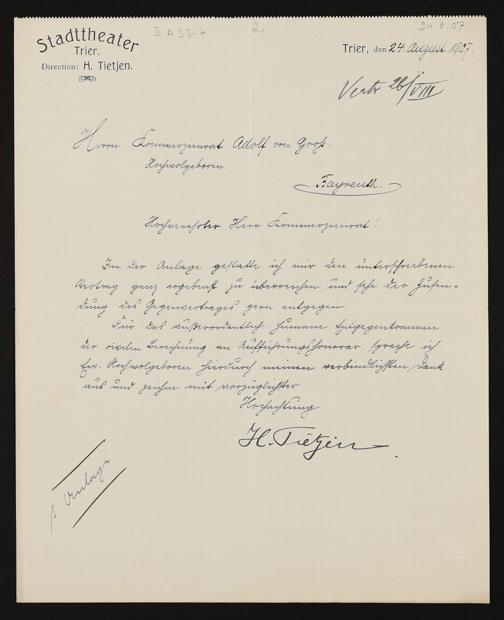 II A 33-7
2.
24.8.07
Stadttheater
Trier.
Direction: H. Tietjen.
Trier, den 24 August 1907.
26/VIII
Herrn Kommerzienrat Adolf von Groß.
Hochwolgeboren.
Bayreuth.
Hochverehrter Herr Kommerzienrat!
In der Anlage gestatte ich mir den unterschriebenen
Vertrag ganz ergebenst zu überreichen und sehe der Zusen-
dung des Gegenvertrages gern entgegen.
Für das außerordentlich humane Entgegenkommen
der Berechnung an Aufführungshonorar, spreche ich
Ew. Hochwolgeboren hierdurch meinen verbindlichsten Dank
aus und zeichne mit vorzüglichster
Hochachtung
H. Tietjen.
1 Anlage